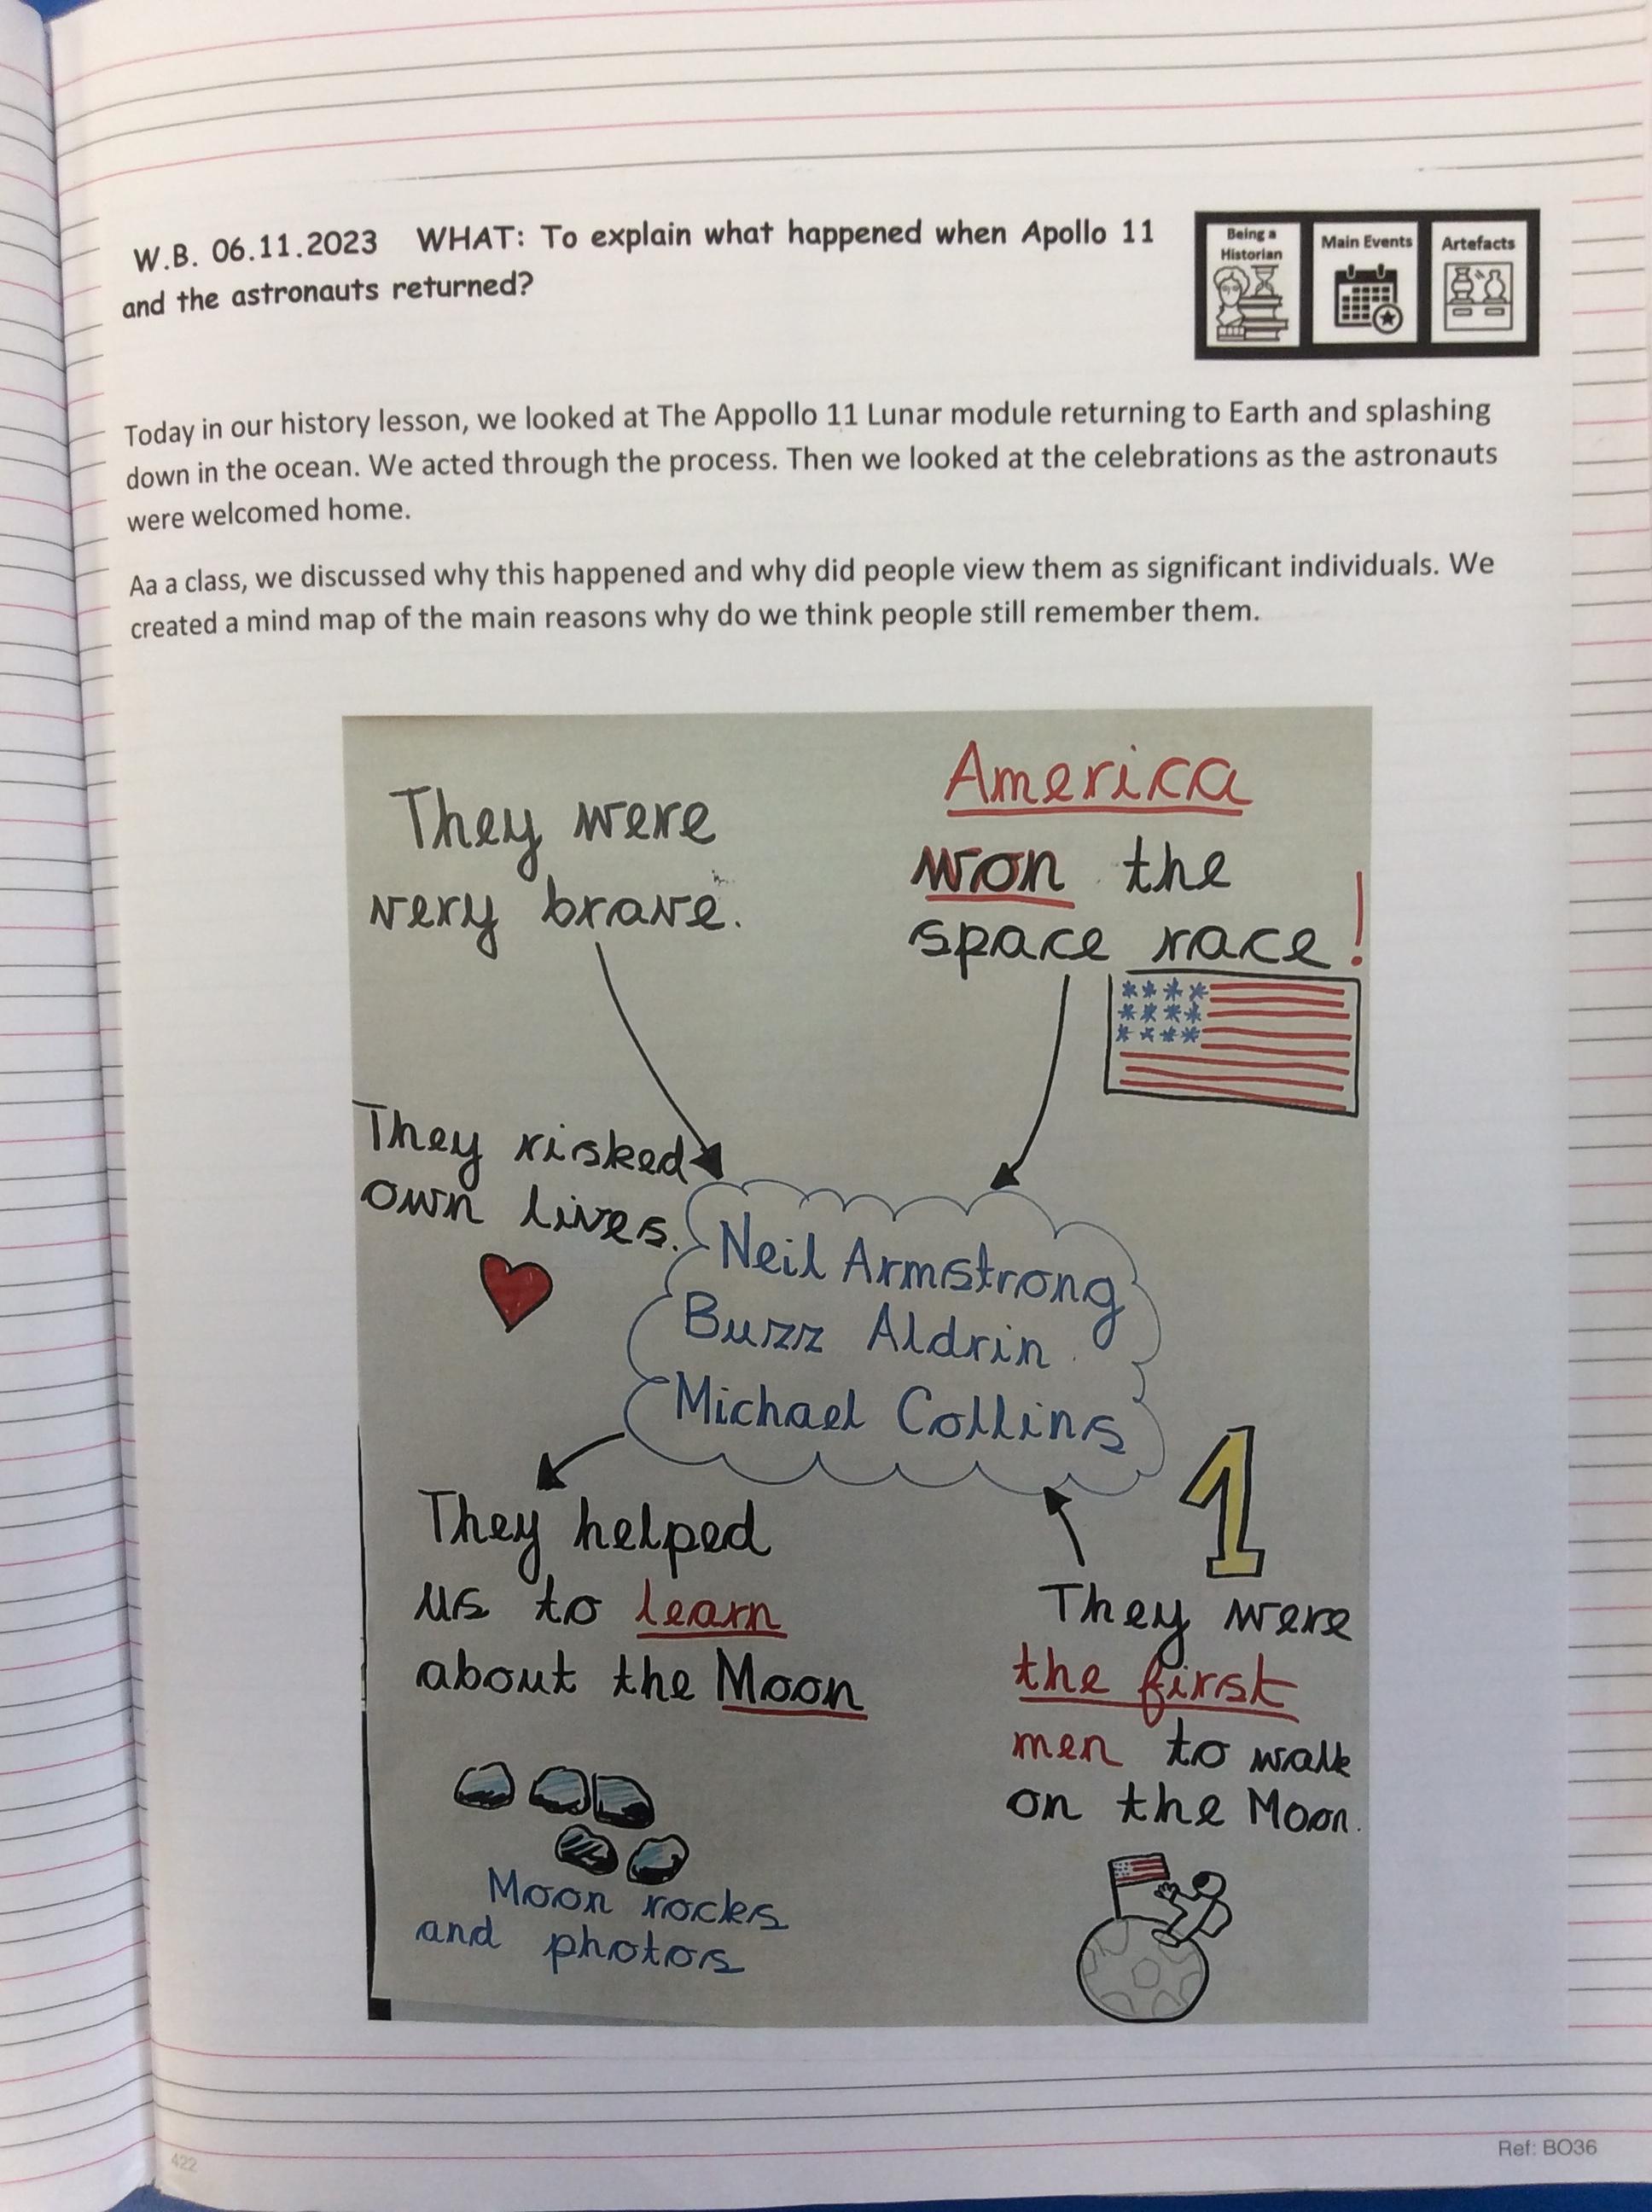 W.B. 06.11.2023 WHAT: To explain what happened when Apollo 11
and the astronauts returned?
Being a
Historian
Main Events
Artefacts
Today in our history lesson, we looked at The Appollo 11 Lunar module returning to Earth and splashing
down in the ocean. We acted through the process. Then we looked at the celebrations as the astronauts
were welcomed home.
Aa a class, we discussed why this happened and why did people view them as significant individuals. We
created a mind map of the main reasons why do we think people still remember them.
They were
very brave.
America
won the
space race!
They risked
own lives.
Neil Armstrong
Buzz Aldrin
Michael Collins
They helped
us to learn
about the Moon
Moon rocks
and photos
1
They were
the first
men to walk
on the Moon.
422
Ref: BO36